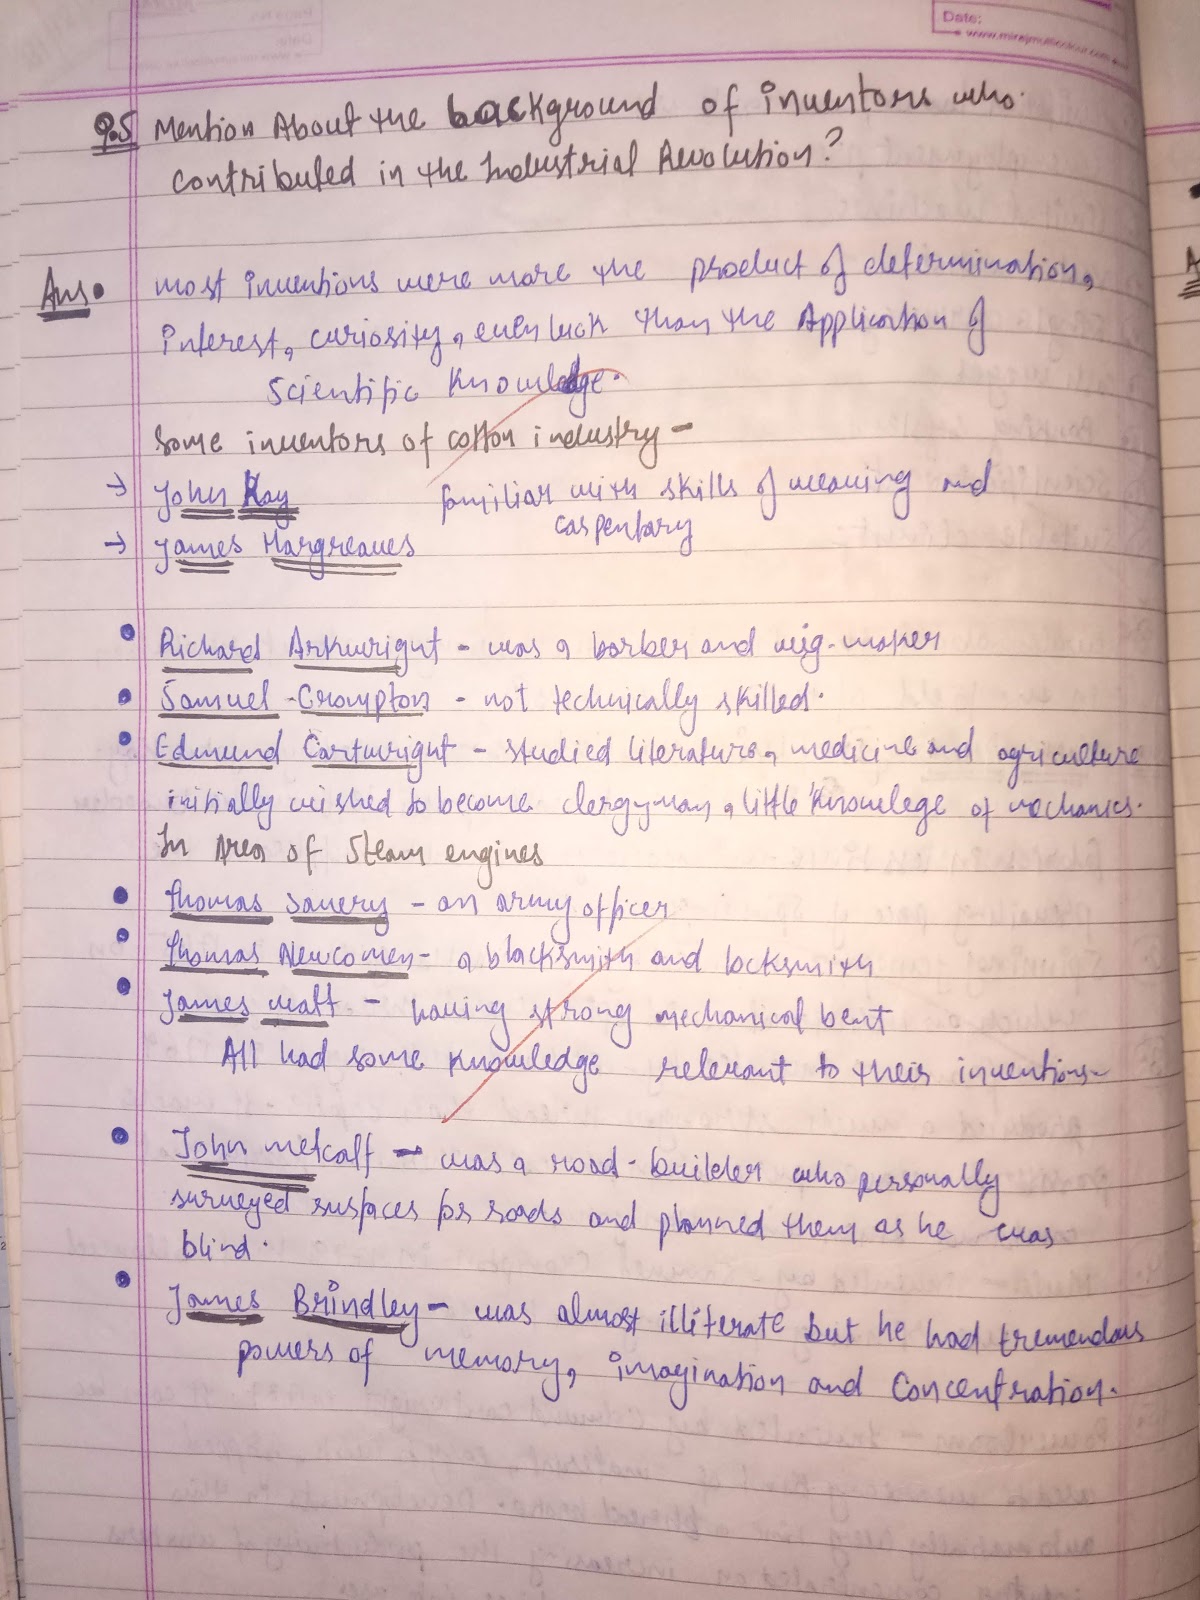 Date:
www.mirajmulticolour.com
Q.5 Mention About the background of inventors who
contributed in the Industrial Revolution?
Ans. most inventions were more the product of determination,
interest, curiosity, even luck than the Application of
Scientific Knowledge.
Some inventors of cotton industry -
→ John Kay familiar with skills of weaving and
caspentary
→ James Hargreaves
• Richard Arkwright - was a barber and wig-maker
• Samuel -Crompton - not technically skilled.
• Edmund Cartwright - studied literature, medicine and agriculture
initially wished to become clergyman, little knowlege of mechanics.
In Area of Steam engines
• Thomas Savery - an army officer
• Thomas Newcomen - a blacksmith and locksmith
• James watt - having strong mechanical bent
All had some knowledge relevant to their inventions-
• John metcalf - was a road-builder who personally
surveyed surfaces for roads and planned them as he was
blind.
• James Brindley - was almost illiterate but he had tremendous
powers of memory, imagination and concentration.